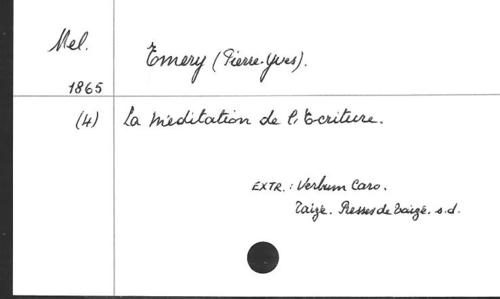 Mel.
Emery (Pierre-Yves).
1865
(4) La méditation de l'Ecriture.
EXTR. : Verbum Caro.
Taizé. Presses de Taizé. s.d.